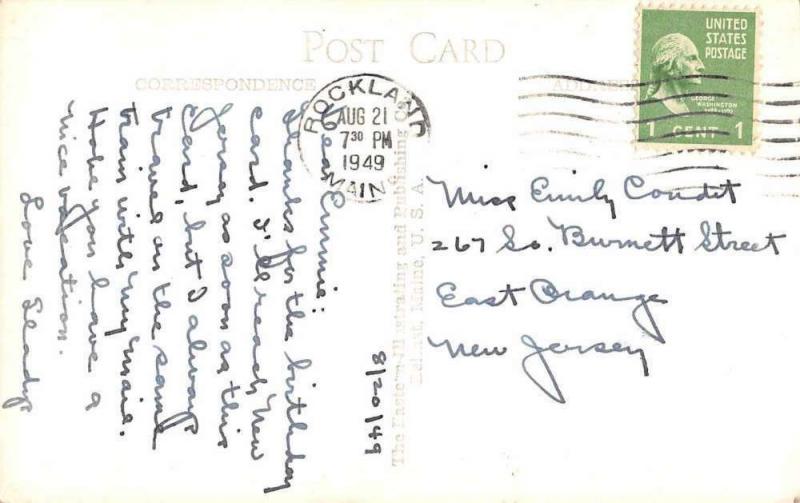 POST CARD
CORRESPONDENCE
ADDRESS
UNITED
STATES
POSTAGE
GEORGE
WASHINGTON
1 CENT 1
ROCKLAND
AUG 21
7 30 PM
1949
MAINE
8/20/49
Dear Emmie:
Thanks for the birthday
card. I'll reach New
Jersey as soon as this
card, but I always
travel on the same
train with my mail.
Hope you have a
nice vacation.
Love Gladys
The Eastern Illustrating and Publishing Co.
Belfast, Maine, U. S. A.
Miss Emily Condit
267 So. Burnett Street
East Orange
New Jersey